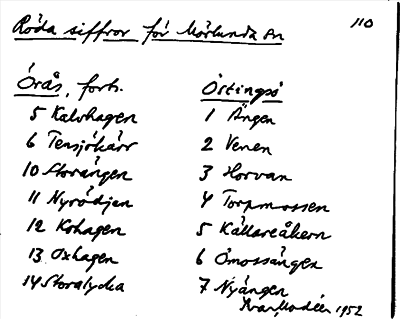 Röda siffror för Mörlunda sn
110
Örås, forts.
5 Kalvhagen
6 Tensjökärr
10 Storängen
11 Nyrödjan
12 Kohagen
13 Oxhagen
14 Storalycka
Östingsö
1 Ängen
2 Venen
3 Horvan
4 Torpmossen
5 Källareåkern
6 Ömossängen
7 Nyängen
Ivar Modéer 1952